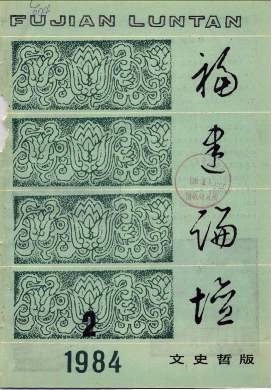 FUJIAN LUNTAN
福建论坛
2
1984
文史哲版